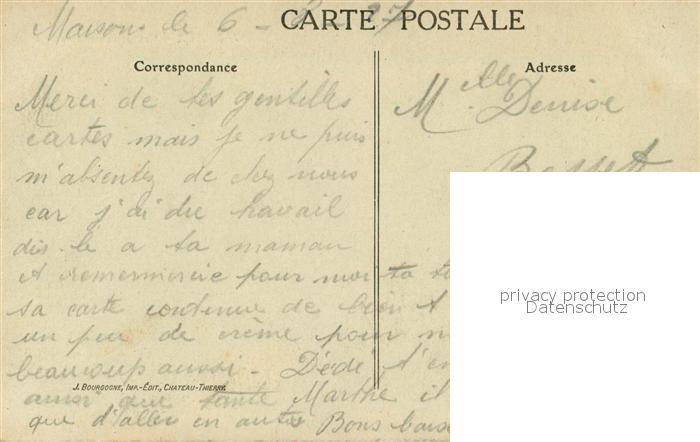 Maisons le 6 - 8 - 27
CARTE POSTALE
Correspondance
Adresse
Merci de tes gentilles
cartes mais je ne puis
m'absentez de chez nous
car j'ai du travail
dis-le a ta maman
et remermercie pour moi ta
sa carte contenue de bien
un peu de crème pour
beaucoup aussi. Dédé t'en
ainsi que tante Marthe il
que d'aller en auto Bons bais
Mlle Denise
privacy protection
Datenschutz
J. BOURGOGNE, IMP.-ÉDIT., CHATEAU-THIERRY